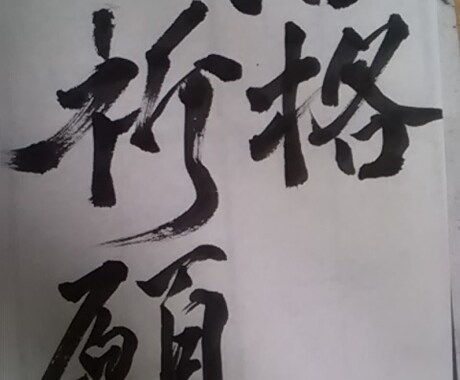 格
祈願